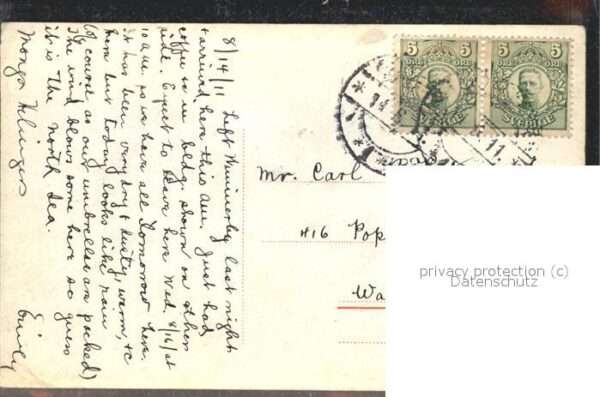 8/14/11 Left Wimmerby last night
& arrived here this am. Just had
coffee in bldg. shown on other
side. Expect to leave here Wed. 8/16/ at
10 am. so we have all tomorrow here.
It has been very dry & dusty, warm, &c
here but today looks like rain
(of course as our umbrellas are packed)
The wind blows some here so guess
it is the North Sea.
Monga Helsingar
Emily
5 5 5 5
ÖRE ÖRE
SVERIGE SVERIGE
14
11
Mr. Carl
416 Pop
Wa
privacy protection (c)
Datenschutz